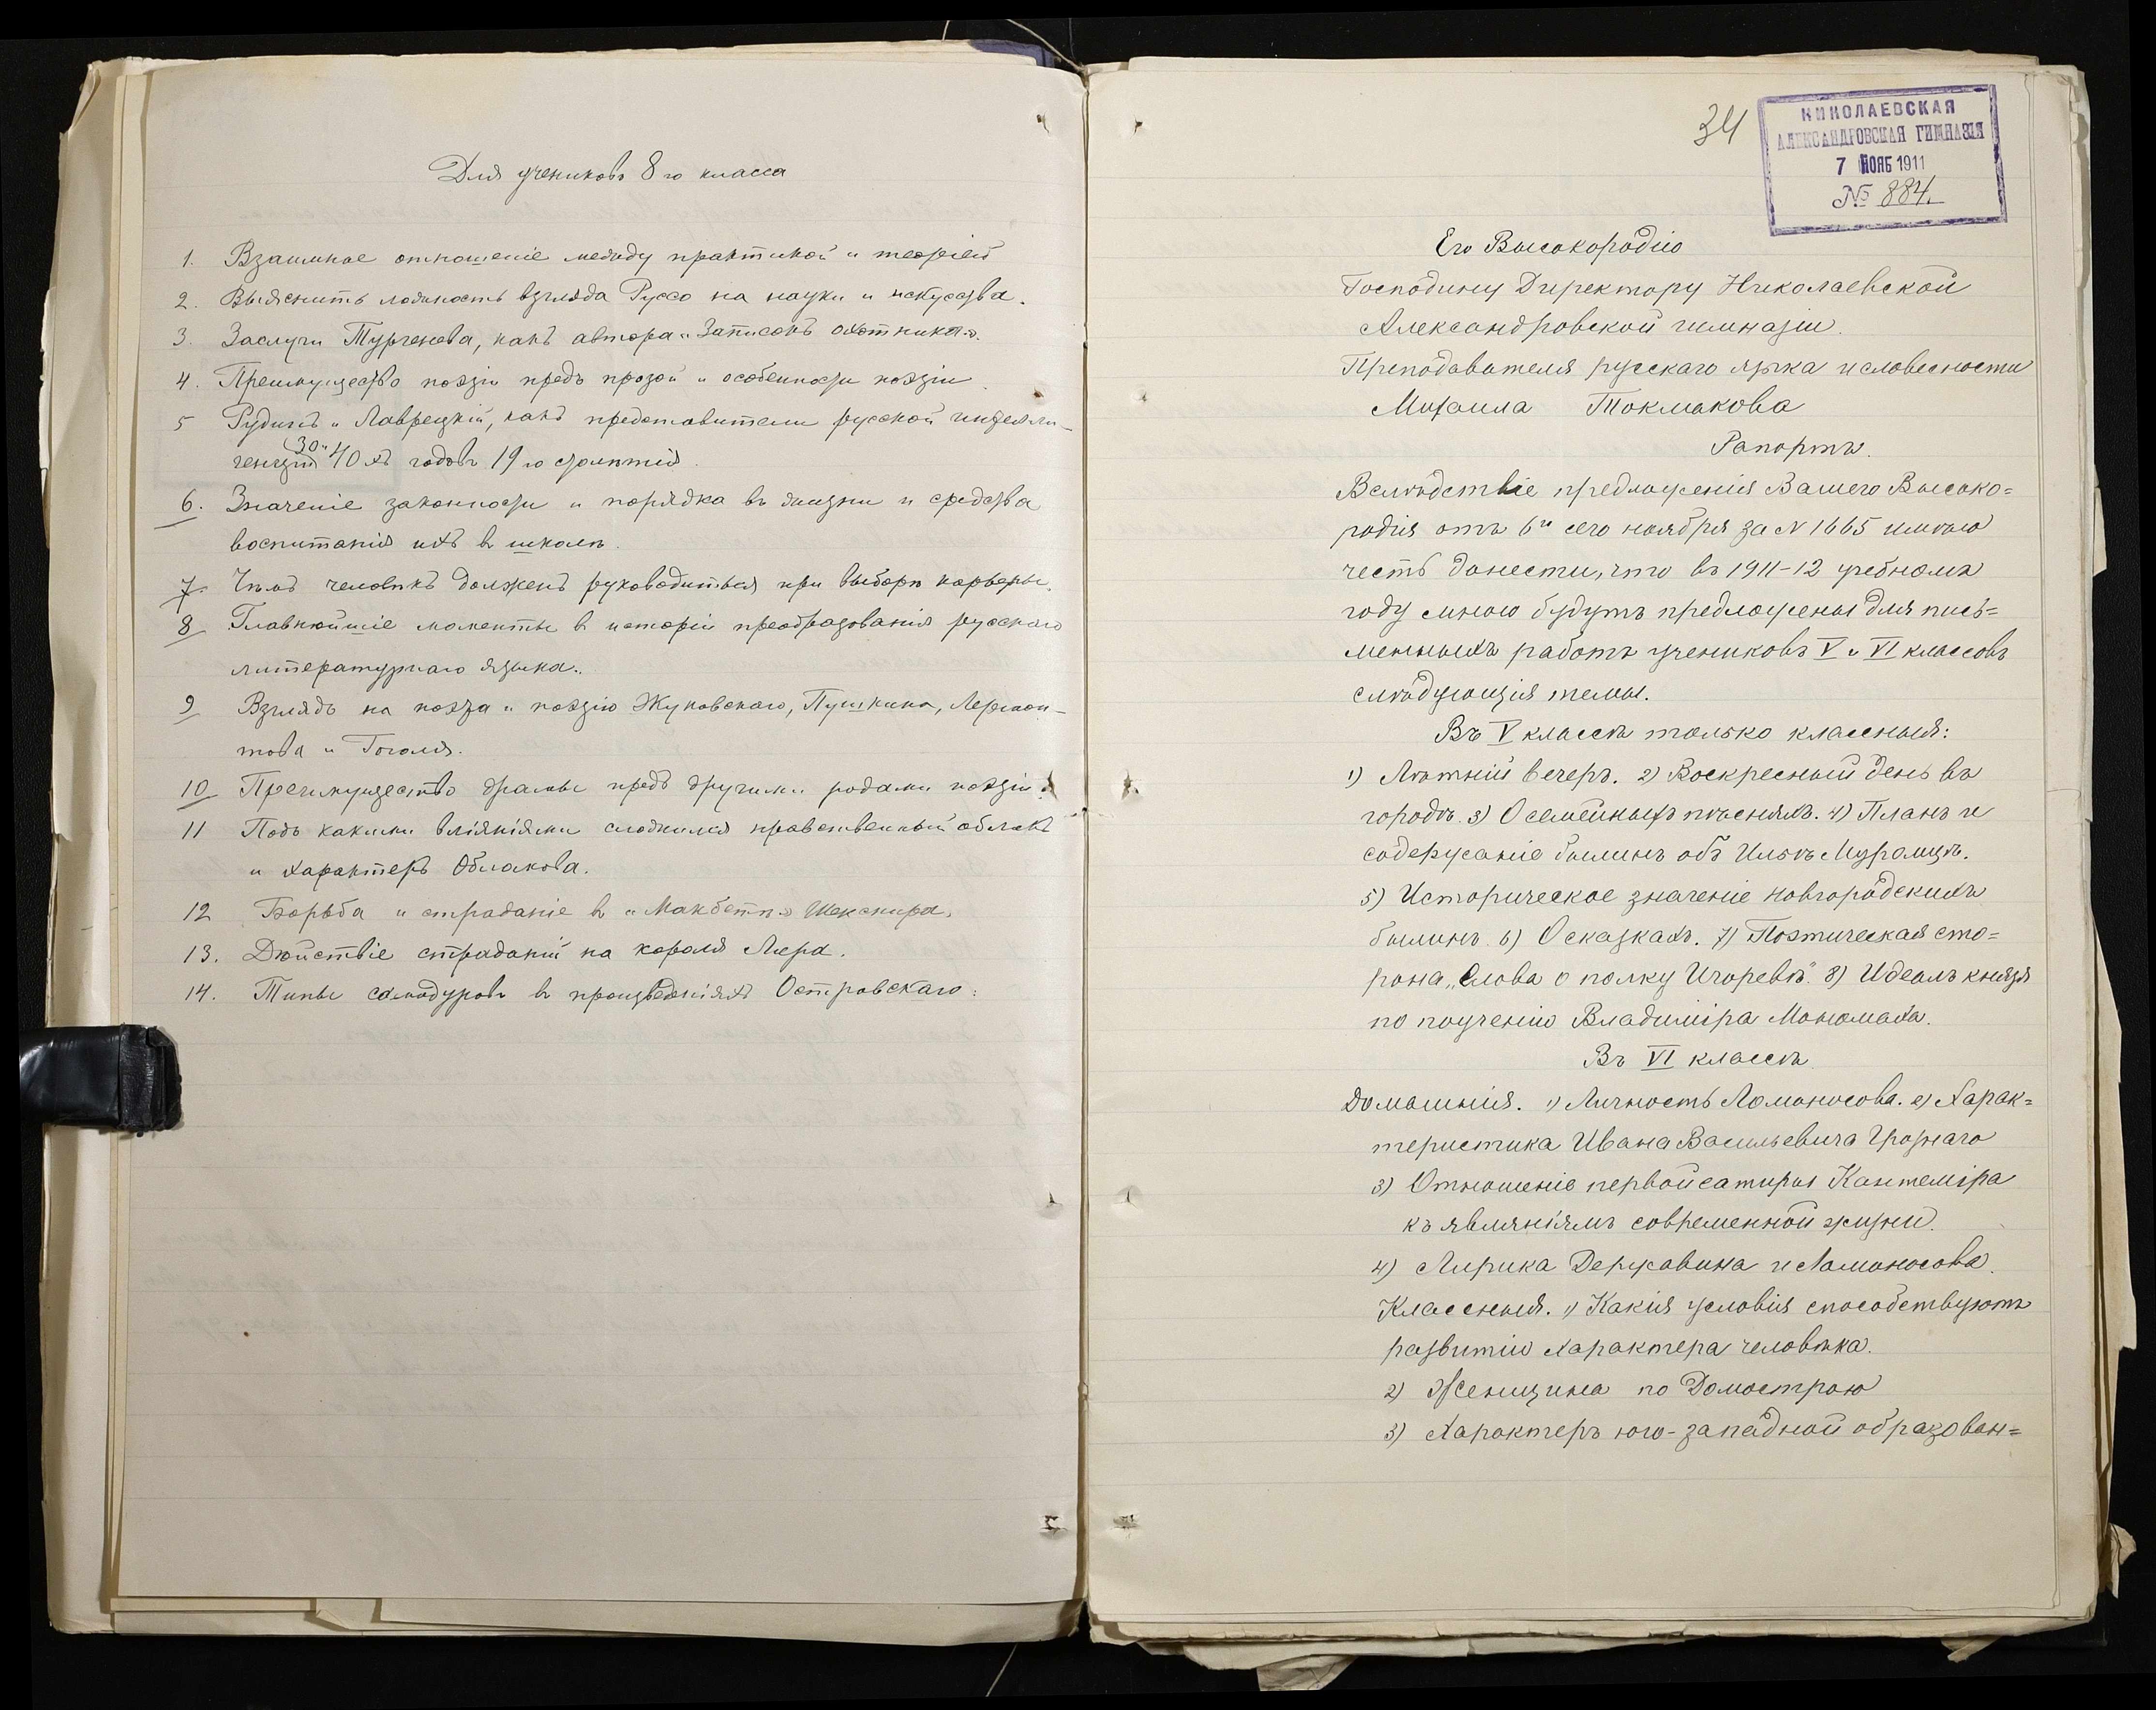 Для учениковъ 8го класса
1. Взаимное отношеніе между практикой и теоріей
2. Выяснить ложность взгляда Руссо на науки и искусства.
3. Заслуги Тургенева, какъ автора „Записокъ охотника".
4. Преимущество поэзіи предъ прозой и особенности поэзіи.
5 Рудинъ и Лаврецкій, какъ представители русской интелли-
генціи 30 и 40хъ годовъ 19го столѣтія.
6. Значеніе законности и порядка въ жизни и средства
воспитанія ихъ въ школѣ.
7. Чѣмъ человѣкъ долженъ руководиться при выборѣ карьеры.
8 Главнѣйшіе моменты въ исторіи преобразованія русскаго
литературнаго языка.
9 Взглядъ на поэта и поэзію Жуковскаго, Пушкина, Лермон-
това и Гоголя.
10 Преимущество драмы предъ другими родами поэзіи.
11 Подъ какими вліяніями сложился нравственный обликъ
и характеръ Обломова.
12 Борьба и страданіе въ „Макбетѣ" Шекспира.
13. Дѣйствіе страданій на короля Лира.
14. Типы самодуровъ въ произведеніяхъ Островскаго.
34
НИКОЛАЕВСКАЯ
АЛЕКСАНДРОВСКАЯ ГИМНАЗІЯ
7 НОЯБ 1911
№ 884.
Его Высокородію
Господину Директору Николаевской
Александровской гимназіи.
Преподавателя русскаго языка и словесности
Михаила Токмакова
Рапортъ.
Вслѣдствіе предложенія Вашего Высоко=
родія отъ 6го сего ноября за N 1665 имѣю
честь донести, что въ 1911-12 учебномъ
году мною будутъ предложены для пись=
менныхъ работъ учениковъ V и VI классовъ
слѣдующія темы.
Въ V классѣ только классныя:
1) Лѣтній вечеръ. 2) Воскресный день въ
городѣ. 3) О семейныхъ пѣсняхъ. 4) Планъ и
содержаніе былинъ объ Ильѣ Муромцѣ.
5) Историческое значеніе новгородскихъ
былинъ. 6) О сказкахъ. 7) Поэтическая сто=
рона „Слова о полку Игоревѣ". 8) Идеалъ князя
по поученію Владиміра Мономаха.
Въ VI классѣ
Домашнія. 1) Личность Ломоносова. 2) Харак=
теристика Ивана Васильевича Грознаго
3) Отношеніе первой сатиры Кантеміра
къ явленіямъ современной жизни.
4) Лирика Державина и Ломоносова.
Классныя. 1) Какія условія способствуютъ
развитію характера человѣка.
2) Женщина по Домострою
3) Характеръ юго-западной образован=